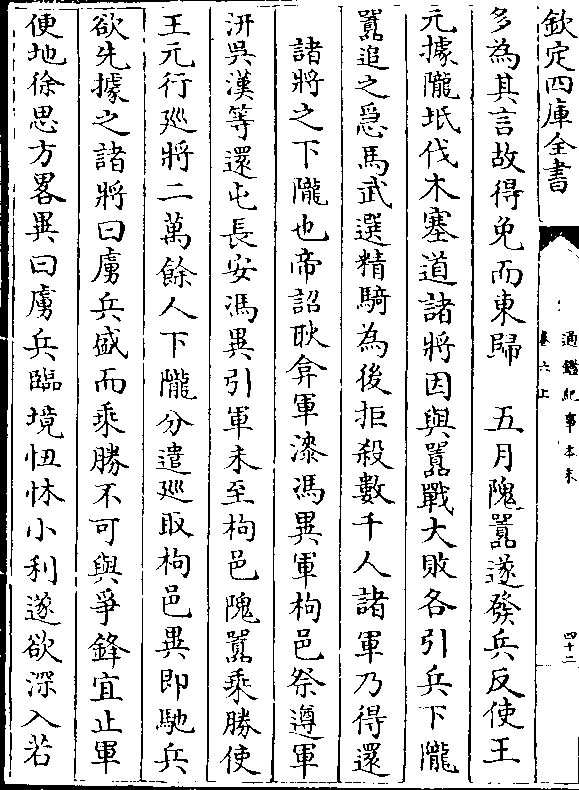 欽定四庫全書
通鑑紀事本末
卷六上
四十二
多為其言故得免而東歸　五月隗囂遂發兵反使王
元據隴坻伐木塞道諸將因與囂戰大敗各引兵下隴
囂追之急馬武選精騎為後拒殺數千人諸軍乃得還
諸將之下隴也帝詔耿弇軍漆馮異軍栒邑祭遵軍
汧吳漢等還屯長安馮異引軍未至栒邑隗囂乘勝使
王元行巡將二萬餘人下隴分遣巡取栒邑異即馳兵
欲先據之諸將曰虜兵盛而乘勝不可與爭鋒宜止軍
便地徐思方畧異曰虜兵臨境忸忕小利遂欲深入若